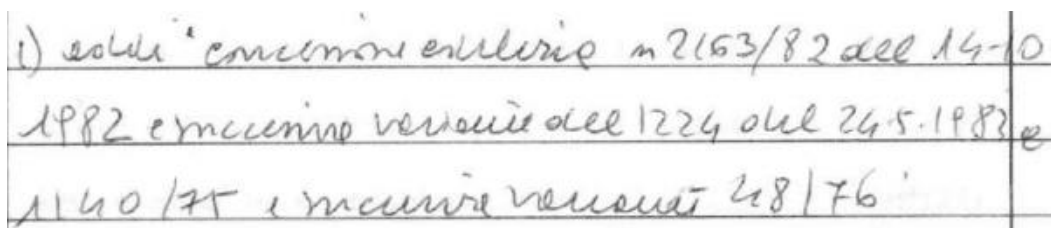 1) edili concessione edilizia n 2163/82 del 14-10
1982 e successiva variante del 1224 del 24.5.1983 e
1140/75 e successive varianti 48/76